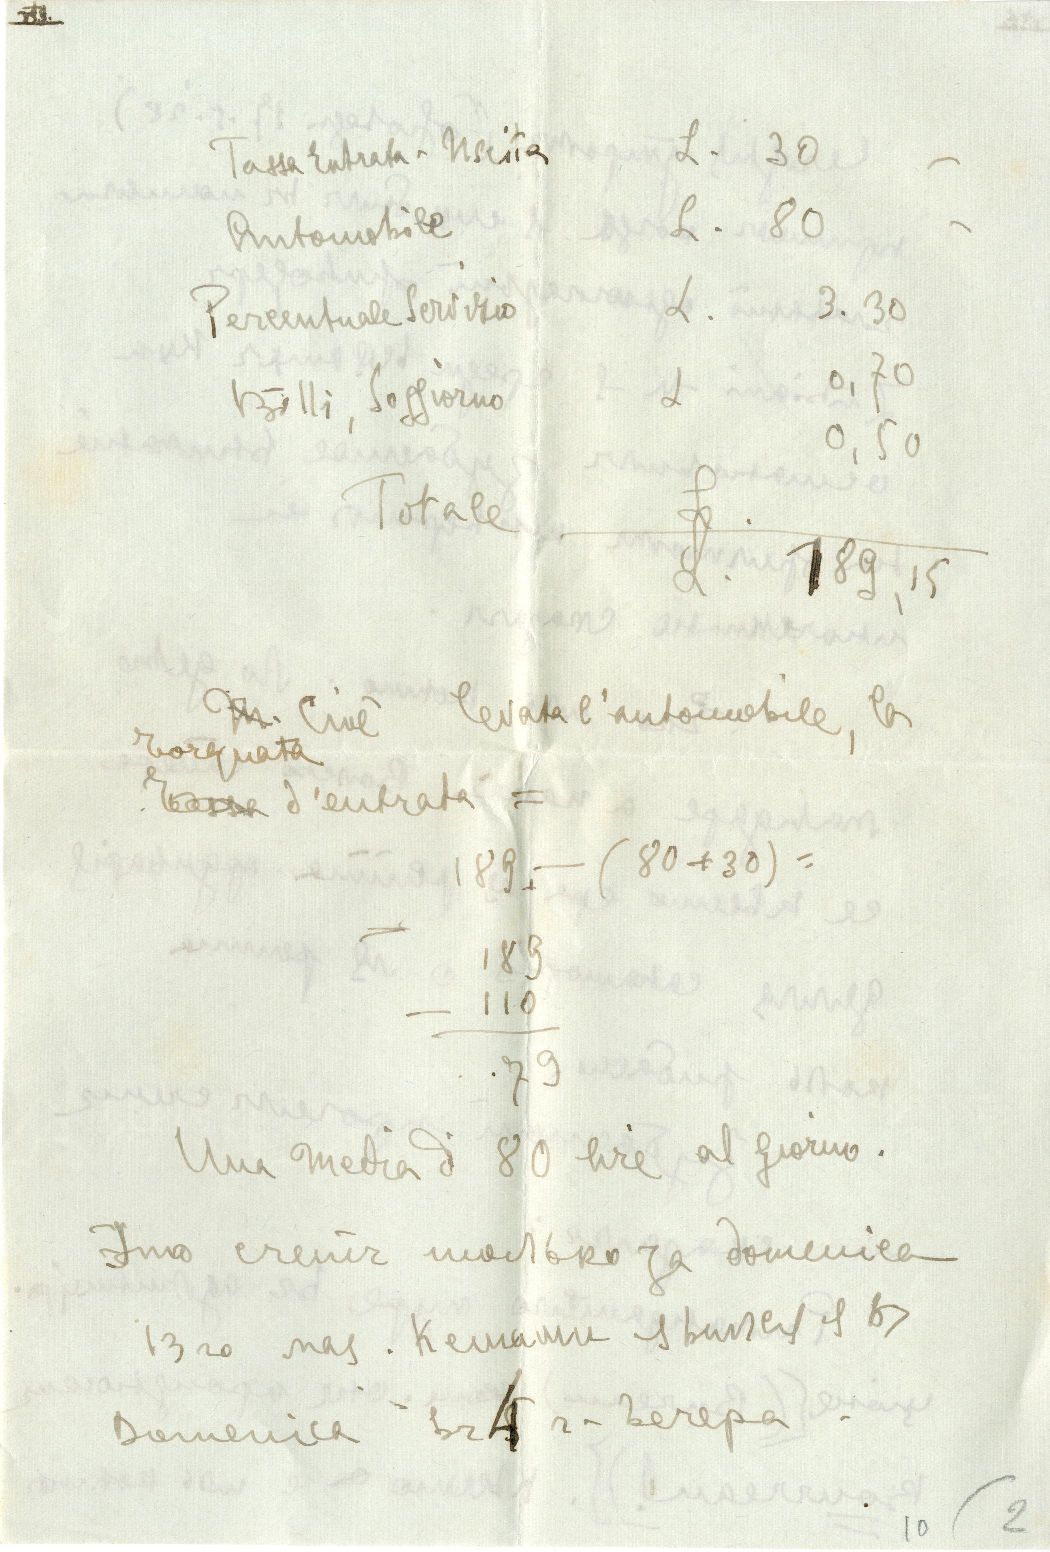 Tassa Entrata - Uscita L. 30 –
Automobile L. 80 –
Percentuale Servizio L. 3.30
Bolli, Soggiorno L 0,70
0,50
Totale L.
L. 189,15
Cioè levata l'automobile, la
torquata
tassa d'entrata =
189.— (80+30) =
189
— 110
79
Una media di 80 lire al giorno.
Это счетъ только за domenica
13го мая. Кстати явился я въ
Domenica въ 4 ч. вечера.
10 (2